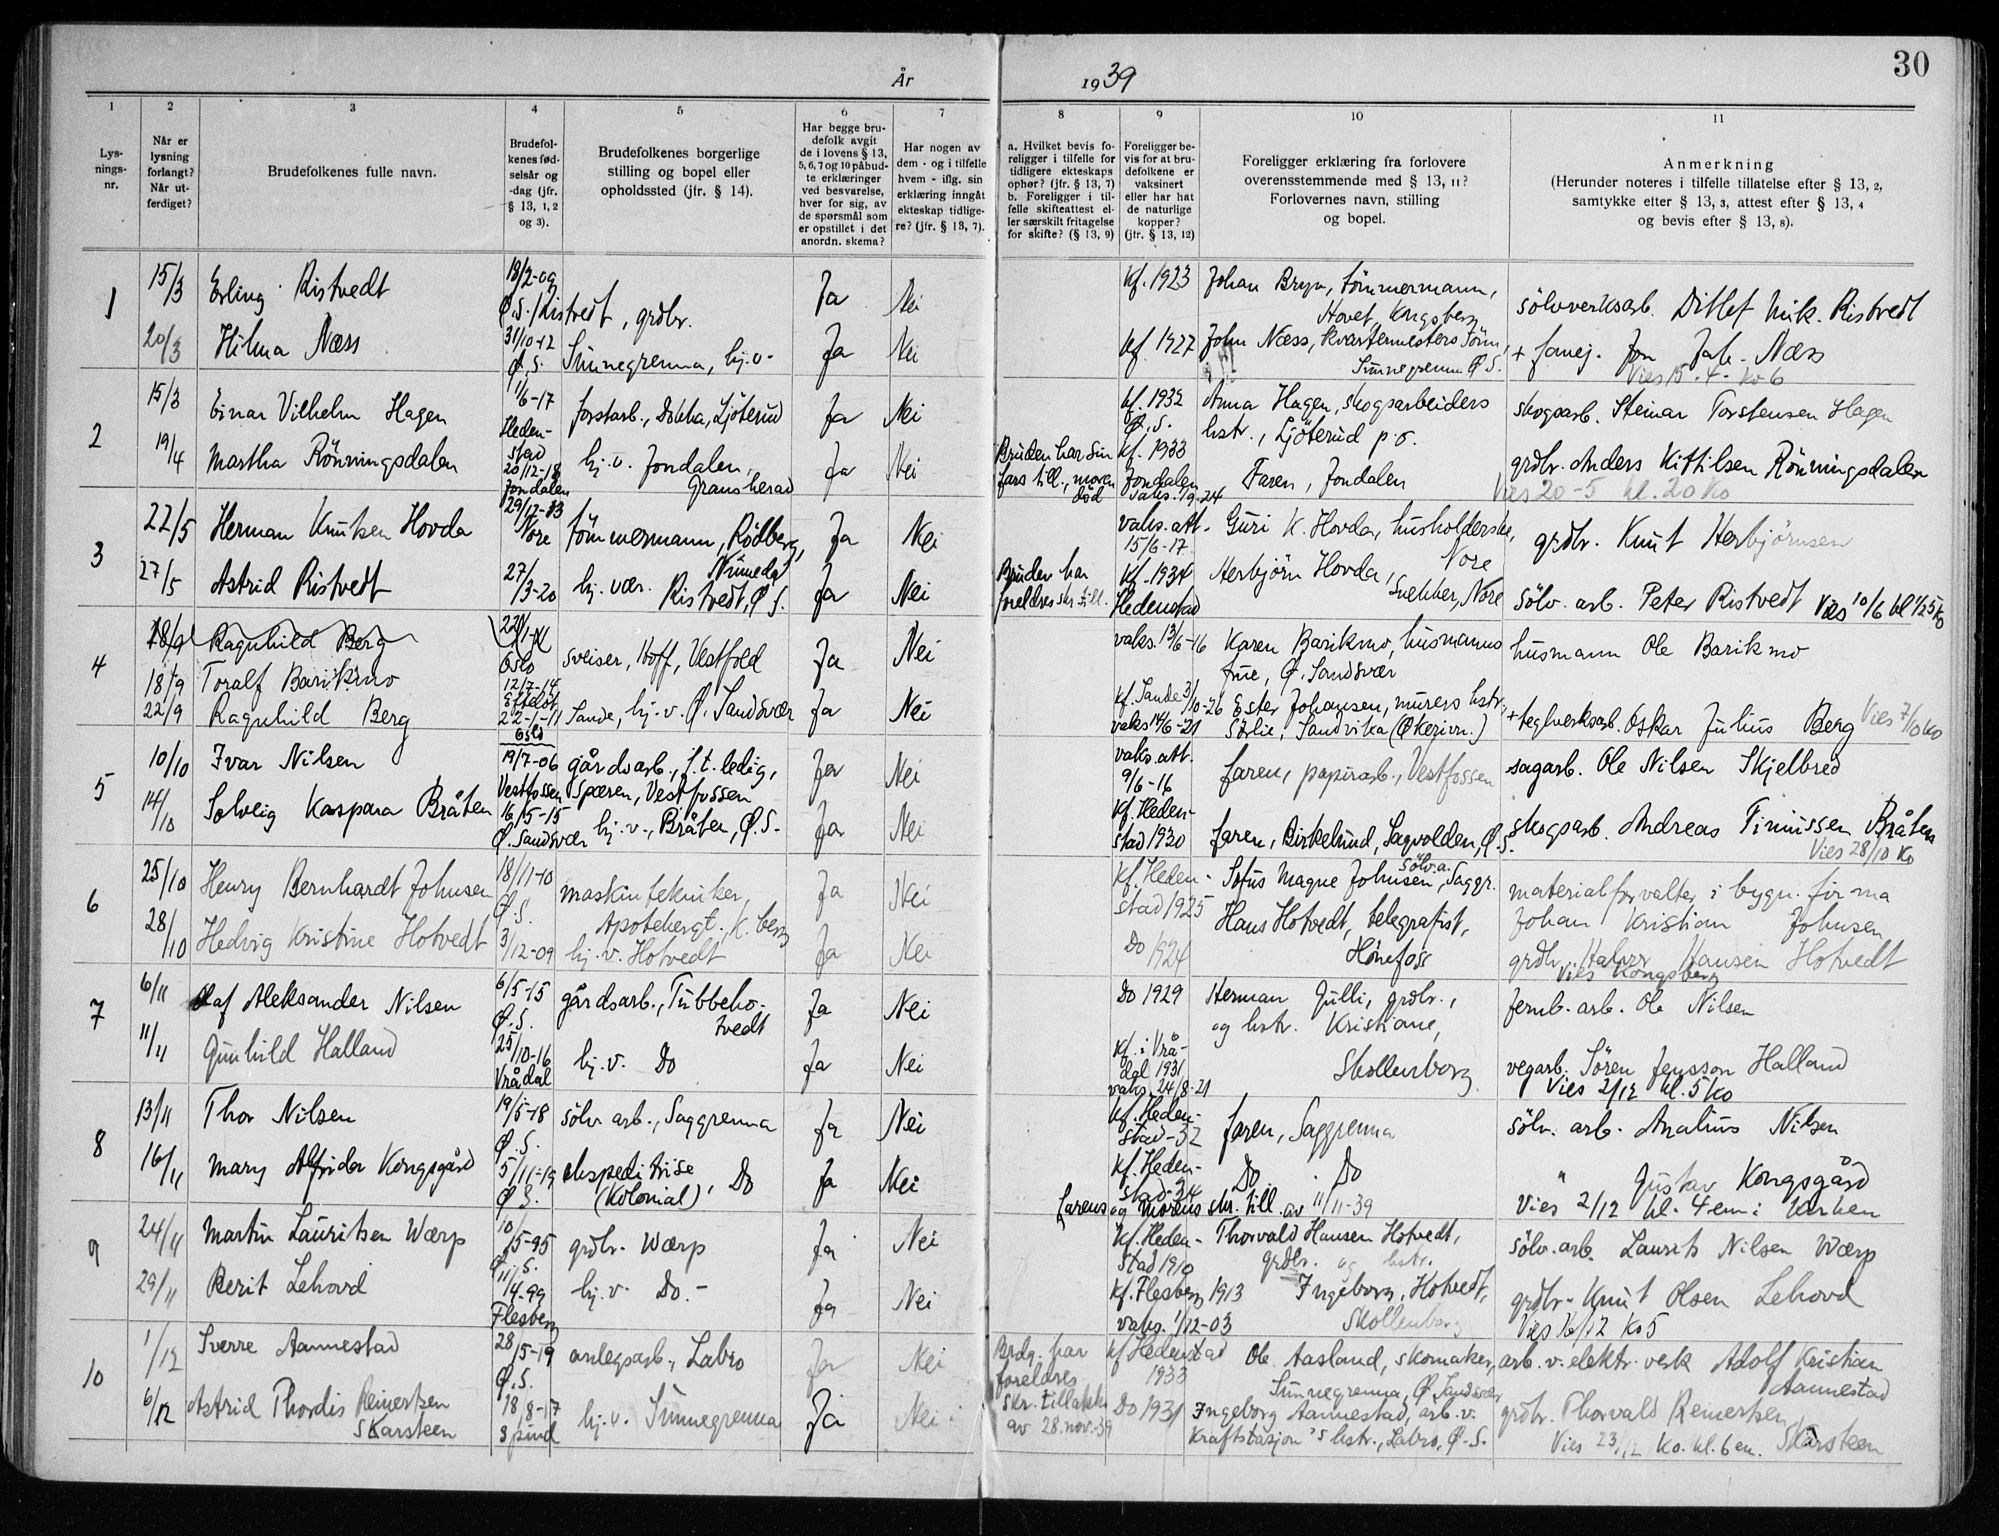 30
År 1939
1 2 3 4 5 6 7 8 9 10 11
Lys-
nings-
nr.
Når er
lysning
forlangt?
Når ut-
ferdiget?
Brudefolkenes fulle navn.
Brudefol-
kenes fød-
selsår og
-dag (jfr.
§ 13, 1, 2
og 3).
Brudefolkenes borgerlige
stilling og bopel eller
opholdssted (jfr. § 14).
Har begge bru-
defolk avgit
de i lovens § 13,
5, 6, 7 og 10 påbud-
te erklæringer
ved besvarelse,
hver for sig, av
de spørsmål som
er opstillet i det
anordn. skema?
Har nogen av
dem - og i tilfelle
hvem - iflg. sin
erklæring inngått
ekteskap tidlige-
re? (jfr. § 13, 7).
a. Hvilket bevis fo-
religger i tilfelle for
tidligere ekteskaps
ophør? (jfr. § 13, 7)
b. Foreligger i til-
felle skifteattest el-
ler særskilt fritagelse
for skifte? (§ 13, 9)
Foreligger be-
vis for at bru-
defolkene er
vaksinert
eller har hat
de naturlige
kopper?
(jfr. § 13, 12)
Foreligger erklæring fra forlovere
overensstemmende med § 13, 11?
Forlovernes navn, stilling
og bopel.
Anmerkning
(Herunder noteres i tilfelle tillatelse efter § 13, 2,
samtykke efter § 13, 3, attest efter § 13, 4
og bevis efter § 13, 8).
1
15/3 Erling Ristvedt 18/2-09 Ø.S. Ristvedt, grdbr. Ja Nei kf. 1923 Johan Bryn, tömmermann,
Hovet, Kongsberg sölvverksarb. Ditlef Mik. Ristvedt
20/3 Hilma Næss 31/10-12 Ø.S. Sunnegrenna, hj.v. Ja Nei kf. 1927 John Næss, kvartermesters sönn,
Sunnegrenna Ø.S. + fanej. Jon Jak. Næss
Vies 15.4. Ko 6
2
15/3 Einar Vilhelm Hagen 1/6-17 Heden-
stad forstarb., Dokka, Ljöterud Ja Nei kf. 1932 Ø.S. Anna Hagen, skogsarbeiders
hstr., Ljöterud p.o. skogsarb. Steinar Torstensen Hagen
19/4 Martha Rönningsdalen 20/12-18 Jondalen hj.v. Jondalen,
Gransherad Ja Nei Bruden har sin
fars till., moren
död kf. 1933 Jondalen Faren, Jondalen grdbr. Anders Kittilsen Rönningsdalen
Vies 20-5 kl. 20 Ko
3
22/5 Herman Knutsen Hovda 29/12-83 Nore tömmermann, Rödberg,
Numedal Ja Nei vaks. att.
15/6-17 Guri K. Hovda, husholderske,
Nore grdbr. Knut Herbjörnsen
27/5 Astrid Ristvedt 27/3-20 hj. vær. Ristvedt, Ø.S. Ja Nei Bruden har
foreldres skr. till. kf. 1934
Hedenstad Herbjörn Hovda,
snekker, Nore sölv. arb. Peter Ristvedt Vies 10/6 kl 1/2 5 Ko
4
18/9 Ragnhild Berg 22/1-11
Oslo sveiser, Hoff, Vestfold Ja Nei vaks. 13/6-16 Karen Barikmo, husmanns
frue, Ø. Sandsvær husmann Ole Barikmo
18/9 Toralf Barikmo 12/7-14
Efteløt
22/9 Ragnhild Berg 22-1-11
Oslo Sande, hj.v. Ø. Sandsvær Ja Nei kf. Sande 3/10-26
vaks 14/6-21 Ester Johansen, murers hstr.,
Sörlie, Sandvika + teglverksarb. Oskar Julius Berg Vies 7/10 Ko
5
10/10 Ivar Nilsen 19/7-06
Vestfossen gårdsarb., f.t. ledig,
Spæren, Vestfossen Ja Nei vaks. att.
9/6-16 faren, papirarb., Vestfossen sagarb. Ole Nilsen Skjelbred
14/10 Solveig Kaspara Bråten 16/5-15
Ø. Sandsvær hj.v., Bråten, Ø.S. Ja Nei kf. Heden-
stad 1930 faren, Birkelund, Sagvolden, Ø.S. skogsarb. Andreas Finnissen Bråten
Vies 28/10 Ko
6
25/10 Henry Bernhardt Johnsen 18/11-10
Ø.S. maskintekniker,
Apotekergt. K.berg Ja Nei kf. Heden-
stad 1925 Sofus Magne Johnsen, sölv.a. Saggr. materialforvalter i bygn. firma
Johan Kristian Johnsen
28/10 Hedvig Kristine Hotvedt 3/12-09 hj.v. Hotvedt Ja Nei Do 1924 Hans Hotvedt, telegrafist,
Hönefoss grdbr. Halvor Hansen Hotvedt
Vies Kongsberg
7
6/11 Olaf Aleksander Nilsen 6/5-15
Ø.S. gårdsarb., Tubbeho-
tvedt Ja Nei Do 1929 Herman Julli, grdbr.,
og hstr. Kristiane,
Skollenborg jernb. arb. Ole Nilsen
11/11 Gunhild Halland 25/10-16
Vrådal hj.v. Do Ja Nei kf. i Vrå-
dal 1931
vaks. 24/8-21 vegarb. Sören Jensson Halland
Vies 2/12 kl. 5 Ko
8
13/11 Thor Nilsen 19/5-18
Ø.S. sölv arb., Saggrenna Ja Nei kf. Heden-
stad-32 faren, Saggrenna sölv. arb. Analius Nilsen
16/11 Mary Alfrida Kongsgård 5/11-19
Ø.S. ekspeditrise
(kolonial), Do Ja Nei kf. Heden-
stad-34 Do Do " Gustav Kongsgård
farens og morens skr. till. av 11/11-39 Vies 2/12 kl. 4 em i kirken
9
24/11 Martin Lauritsen Wærp 10/5-95
Ø.S. grdbr. Wærp Ja Nei kf. Heden-
stad 1910 Thorvald Hansen Hotvedt,
grdbr. og hstr. sölv. arb. Laurits Nilsen Wærp
29/11 Berit Lehovd 11/4-99
Flesberg hj.v. Do.- Ja Nei kf. Flesberg 1913
vaks. 1/12-03 Ingeborg, Hotvedt,
Skollenborg grdbr. Knut Olsen Lehovd
Vies 16/12 Ko 5
10
1/12 Sverre Aannestad 28/5-19
Ø.S. anlegsarb., Labro Ja Nei Brdg. har
foreldres
skr. tillatelse
av 28. nov.-39 kf Hedenstad
1933 Ole Aasland, skomaker,
Sunnegrenna, Ø. Sandsvær arb. v. elektr. verk Adolf Kristian
Aannestad
6/12 Astrid Thordis Reinertsen
Skarsteen 18/8-17
Spind hj.v. Sunnegrenna Ja Nei Do 1931 Ingeborg Aannestad, arb. v.
kraftstasjon's hstr., Labro, Ø.S. grdbr. Thorvald Reinertsen
Skarsteen
Vies 23/12 Ko. kl. 6 em.